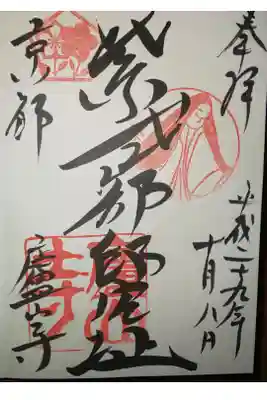 奉拝
平成二十九年
十月八日
紫式部邸宅址
京都
廬山寺